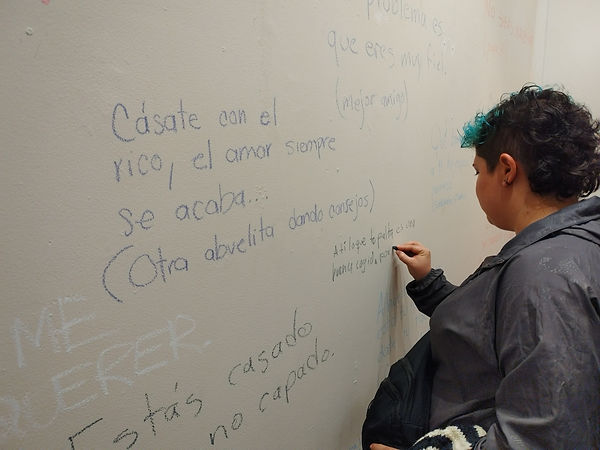 problema es
que eres muy fiel.
(mejor amigo)
Cásate con el
rico, el amor siempre
se acaba...
(Otra abuelita dando consejos)
A ti lo que te falta es una
buena cogida
ME
QUERER.
Estás casado
no capado.